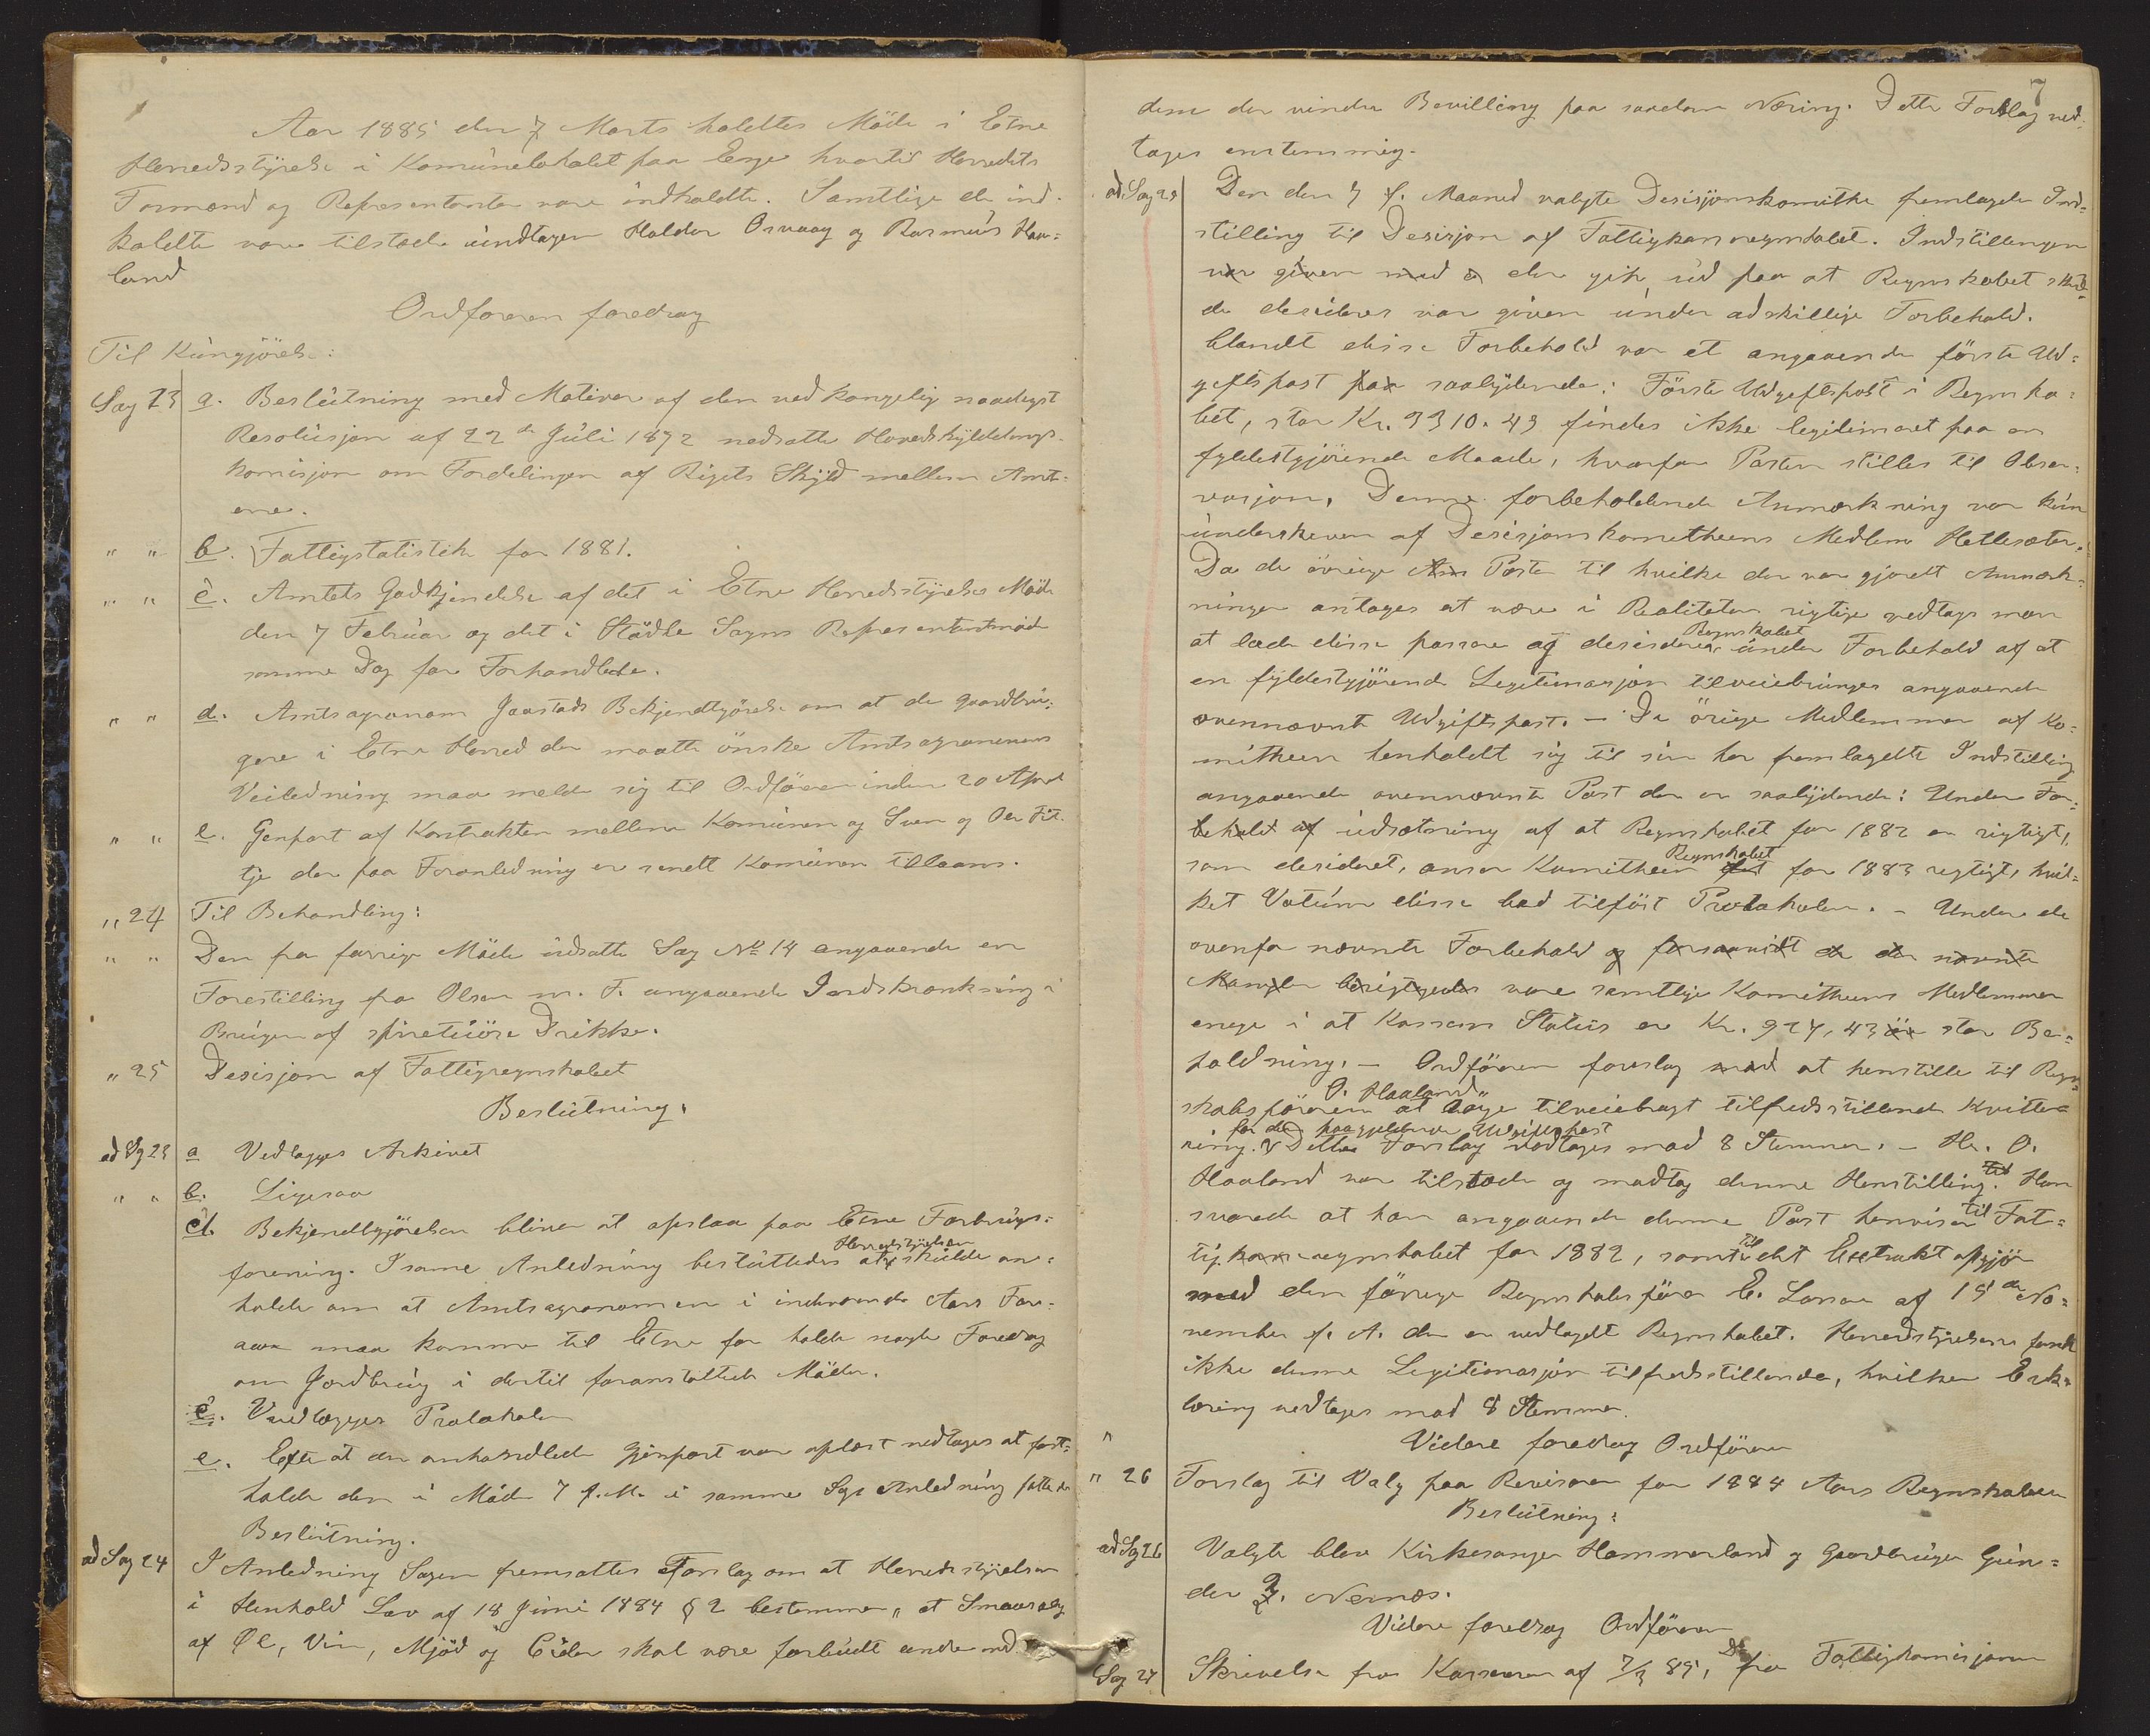 Aar 1885 den 7 Marts holdtes Möde i Etne
Herredsstÿrelse i Komúnelokalet paa Enge hvortil Herredets
Formænd og Representanter vare indkaldte. Samtlige de ind-
kaldte vare tilstæde úndtagen Haldor Osvaag og Rasmús Haa=
land
Ordföreren foredrog
Til Kúngjörelse:
Sag 23 a. Beslútning med Motiver af den ved kongelig naadigst
Resolúsjon af 22de Júli 1872 nedsatte Hovedskÿlddelings-
komisjon om Fordelingen af Rigets Skÿld mellem Amt-
erne.
" " b. Fattigstatistik for 1881.
" " c. Amtets Godkjendelse af det i Etne Herredsstÿrelses Möde
den 7 Febrúar og det i Städle Sogns Representantmöde
samme Dag för Forhandlede.
" " d. Amtsagronom Jaastads Bekjendtgjörelse om at de gaardbrú-
gere i Etne Herred der maatte önske Amtsagronomens
Veiledning maa melde sig til Ordföreren inden 20 April
" " e. Genpart af Kontrakten mellem Komúnen og Sven og Ole Fit-
tje der paa Foranledning er sendt Komúnen tillaans.
" 24 Til Behandling:
" " Den fra forrige Möde údsatte Sag No 14 angaaende en
Forestilling fra Olsen m. F. angaaende Indskrænkning i
Brúgen af spirituöse Drikke.
" 25 Desisjon af Fattigregnskabet
Beslútning.
ad Sag 23 a Vedlægges Arkivet
" " b. Ligesaa
d. Bekjendtgjörelsen bliver at opslaa paa Etne Forbrúgs=
forening. I same Anledning beslúttedes at Herredsstÿrelsen skúlde an=
holde om at Amtsagronomen i indeværende Aars For=
aar maa komme til Etne for holde nogle Foredrag
om Jordbrúg i dertil foranstaltede Möder.
c. Vedlægges Protokolen
e. Efter at den omhandlede Gjenpart var oplæst vedtoges at fast-
holde den i Möde 7 f. M. i samme Sags Anledning fattede
Beslútning.
ad Sag 24 I Anledning Sagen fremsattes Forslag om at Herredsstÿrelsen
i Henhold Lov af 18 Júni 1884 § 2 bestemmer, "at Smaasalg
af Øl, Vin, Mjöd og Cider skal være forbúdt andre end
7
dem der vinder Bevilling paa saadan Næring. Dette Forslag ved-
toges enstemmig.
ad. Sag 25 Den den 7 f. Maaned valgte Desisjonskomitke fremlagde Ind-
stilling til Desisjon af Fattigkasseregnskabet. Indstillingen
var given med a der gik úd paa at Regnskabet skúl-
de desideres var given únder adskillige Forbehold.
blandt disse Forbehold var et angaaende förste Ud=
geftspost paa saalÿdende: Förste Udgeftspost i Regnska-
bet, stor Kr. 3310.43 findes ikke legitimeret paa en
fyldestgjörende Maade, hvorfor Posten stilles til Obser-
vasjon. Denne forbeholdende Anmærkning var kún
únderskreven af Desisjonskomitheens Medlem Hetlesæter.
Da de övrige Am Poster til hvilke der var gjordt Anmærk-
ninger antages at være i Realiteten rigtige vedtoges man
at lade disse passere og desidere Regnskabet únder Forbehold af at
en fÿldestgjörende Legitimasjon tilveiebringes angaaende
ovennævnte Udgiftspost. — De örige Medlemmer af Ko-
mitheen henholdt sig til sin her fremlagdte Indstilling
angaaende ovennævnte Post der er saalÿdende: Under For-
behold af údsætning af at Regnskabet for 1882 er rigtigt,
som desideret, anser Komitheen det Regnskabet for 1883 rigtigt, hvil-
ket Votúm disse bad tilföit Protokolen. — Under de
ovenfor nævnte Forbehold og forsaavidt de der nævnte
Mangler berigtigedes vare samtlige Komitheens Medlemmer
enige i at Kassens Statús er Kr. 927,43 stor Be-
holdning. — Ordföreren foreslog med at henstille til Regn-
skabsföreren O. Haaland at sörge tilveiebragt tilfredsstillende Kvitte-
ring for den paagjeldende Udgiftspost. Dette Forslag vedtoges med 8 Stemmer. — Hr. O.
Haaland var tilstede og modtog denne Henstilling. Han
svarede at han angaaende denne Post henviser til Fat-
tigkasseregnskabet for 1882, samt til det Extrakt opgjör
med den förrige Regnskabsförer E. Larsen af 15de No-
vember f. A. der er vedlagdt Regnskabet. Herredsstÿrelsen fandt
ikke denne Legitimasjon tilfredsstillende, hvilken Erk-
læring vedtoges med 8 Stemmer.
" Videre foredrog Ordföreren
" 26 Forslag til Valg paa Revisorer for 1884 Aars Regnskaber
Beslútning:
ad Sag 26 Valgte blev Kirkesanger Hammerland og Gaardbrúger Gún-
der J. Nernæs.
Videre foredrog Ordföreren
Sag 27 Skrivelse fra Kassereren af 7/3 85, Do fra Fattigkomisjonen